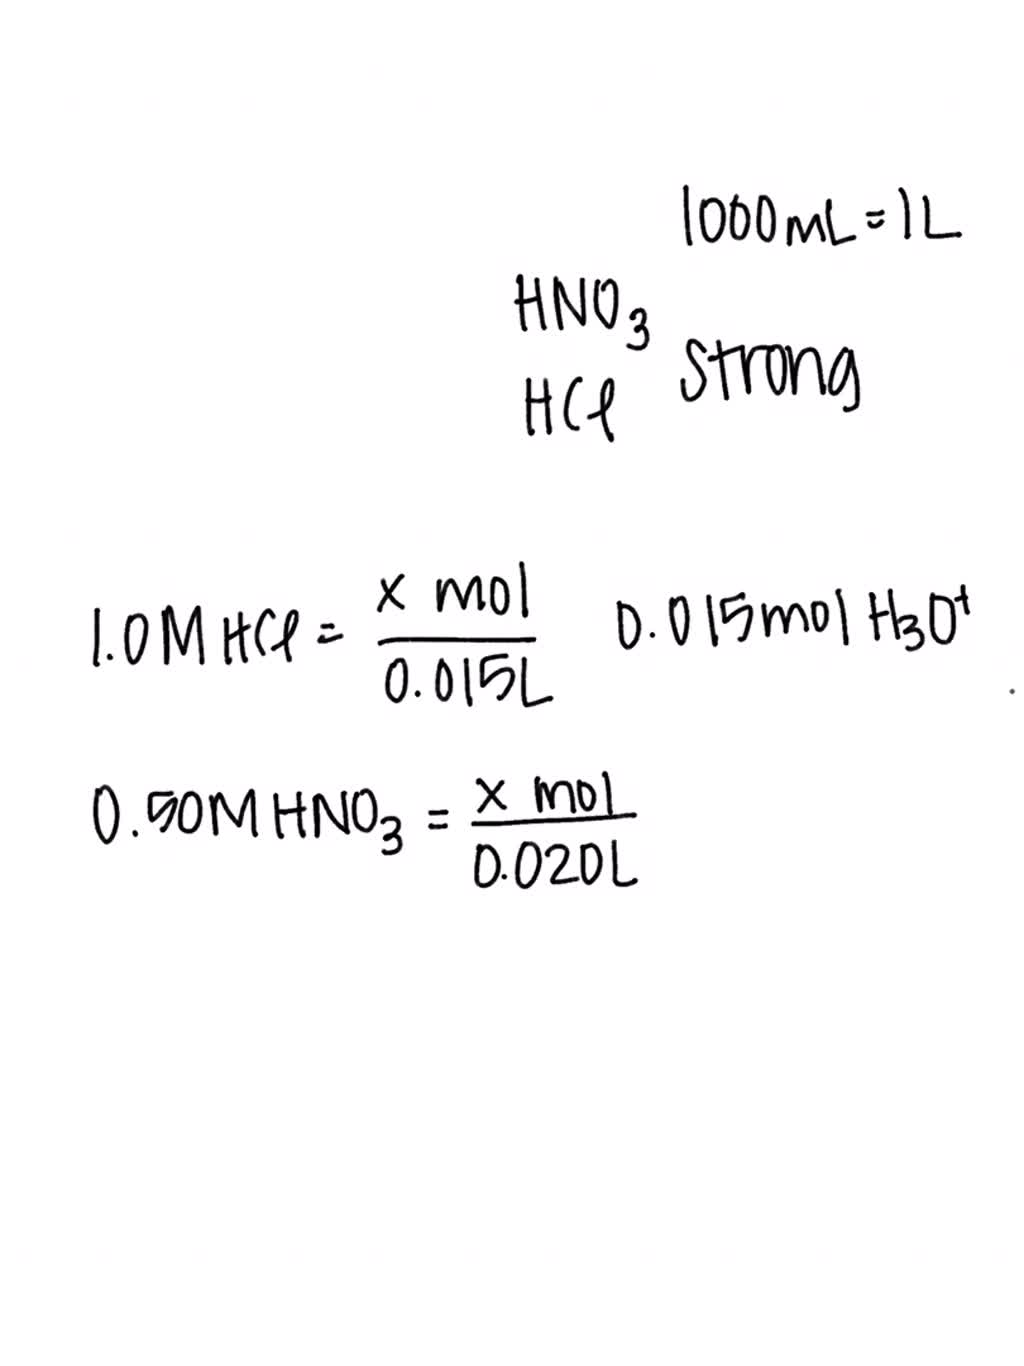 1000mL = 1L
HNO₃
strong
HCl
1.0M HCl = x mol / 0.015L 0.015mol H₃O⁺
0.50M HNO₃ = x mol / 0.020L